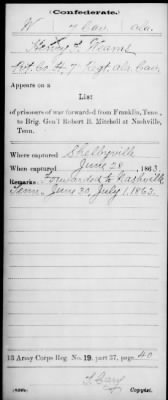 Confederate.
W 7 Cav. Ala.
Pvt. Co. H, 7 Regt. Ala. Cav.
Appears on a
List
of prisoners of war forwarded from Franklin, Tenn.,
to Brig. Gen'l Robert B. Mitchell at Nashville,
Tenn.
Where captured Shelbyville
When captured June 28, 1863
Remarks: Forwarded to Nashville
Tenn., June 30, July 1, 1863.
13 Army Corps Reg. No. 19, part 37, page 40
Copyist.